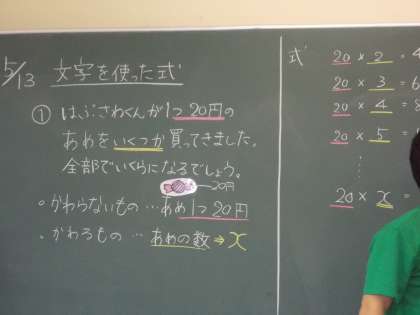 5/13 文字を使った式
① はぶさわくんが1つ20円の
あめをいくつか買ってきました。
全部でいくらになるでしょう。
20円
○かわらないもの…あめ1つ20円
○かわるもの…あめの数⇒x
式 20×2=4
20×3=6
20×4=
20×5=
⋮
20×x=